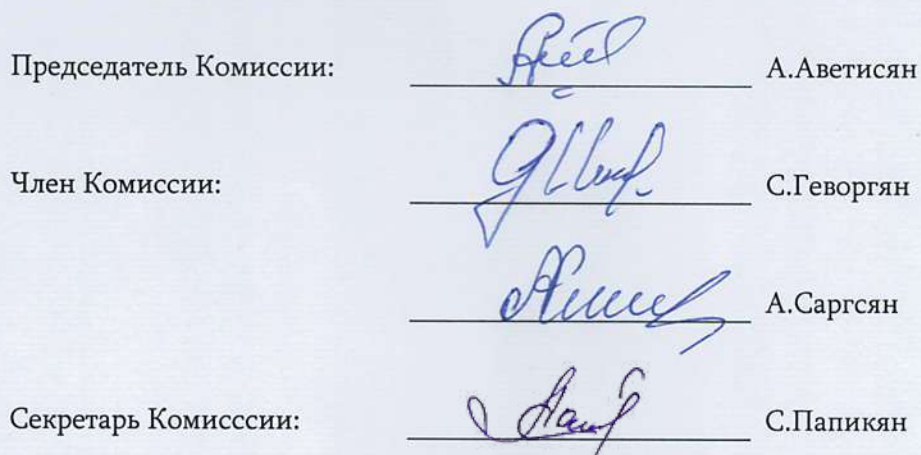 Председатель Комиссии: А.Аветисян
Член Комиссии: С.Геворгян
А.Саргсян
Секретарь Комисссии: С.Папикян